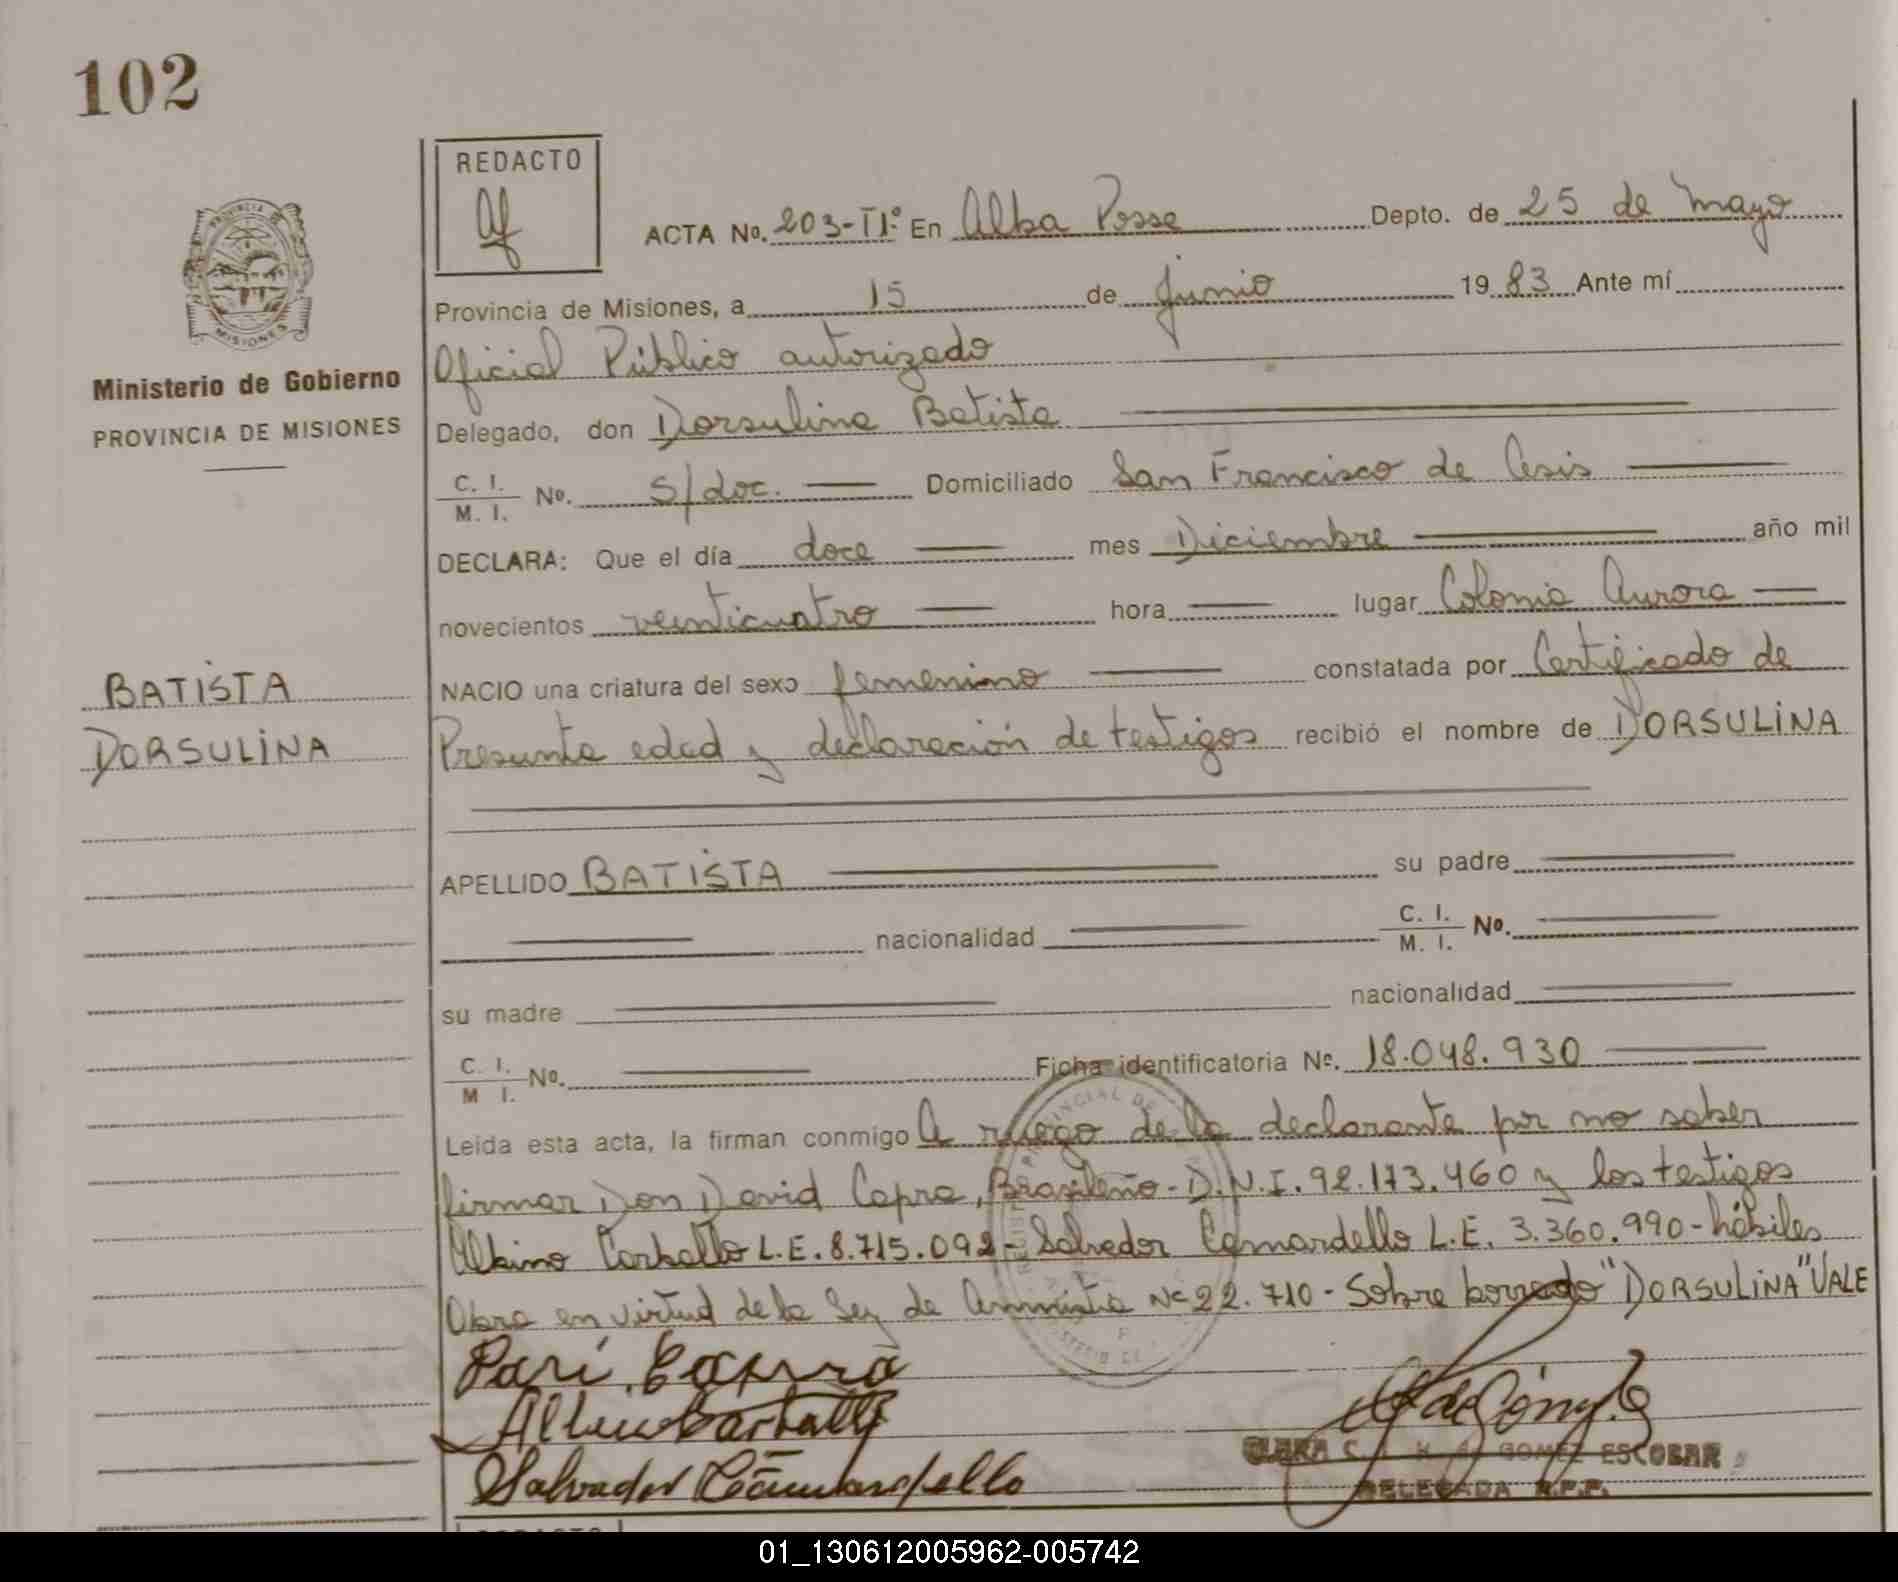 102
REDACTO
ACTA No. 203-II° En Alba Posse Depto. de 25 de Mayo
PROVINCIA DE
MISIONES
Provincia de Misiones, a 15 de junio 19 83 Ante mí
Oficial Público autorizado
Ministerio de Gobierno
PROVINCIA DE MISIONES
Delegado, don Dorsulina Batista
C. I. / M. I. No. s/doc. Domiciliado San Francisco de Asis
DECLARA: Que el día doce mes Diciembre año mil
novecientos veinticuatro hora lugar Colonia Aurora
BATISTA
DORSULINA
NACIO una criatura del sexo femenino constatada por Certificado de
Presunta edad y declaración de testigos recibió el nombre de DORSULINA
APELLIDO BATISTA su padre
nacionalidad C. I. / M. I. No.
su madre nacionalidad
C. I. / M I. No. Ficha identificatoria No. 18.048.930
Leida esta acta, la firman conmigo A ruego de la declarante por no saber
firmar Don David Capra, Brasileño - D.N.I. 92.173.460 y los testigos
Albino Carballo L.E. 8.715.092 - Salvador Camardello L.E. 3.360.990 - hábiles
Obra en virtud de la Ley de Amnistia Nº 22.710 - Sobre borrado "DORSULINA" VALE
Salvador Camardello
GOMEZ ESCOBAR
DELEGADA R.P.P.
01_130612005962-005742